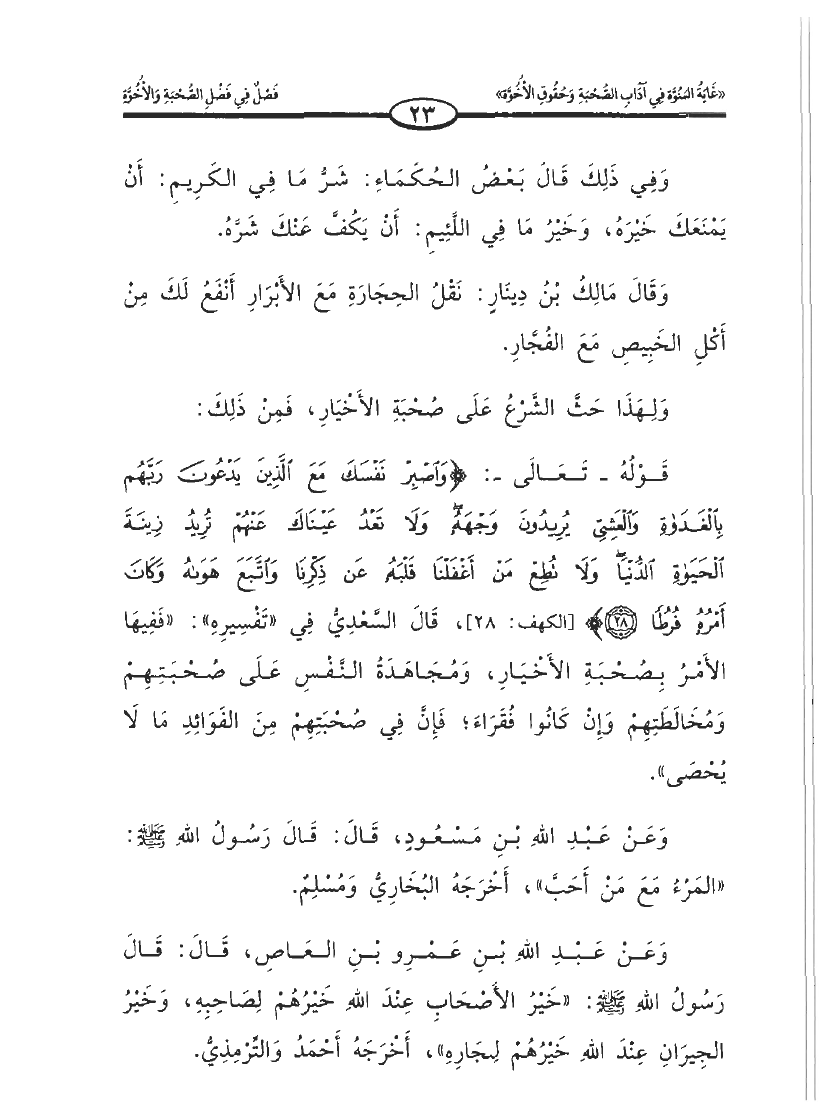 «غَايَةُ المُنُوَّة فِي آدَابِ الصُّحْبَةِ وَحُقُوقِ الأُخُوَّة» فَصْلٌ فِي فَضْلِ الصُّحْبَةِ وَالأُخُوَّةِ
٢٣
وَفِي ذَلِكَ قَالَ بَعْضُ الحُكَمَاءِ: شَرُّ مَا فِي الكَرِيمِ: أَنْ
يَمْنَعَكَ خَيْرَهُ، وَخَيْرُ مَا فِي اللَّئِيمِ: أَنْ يَكُفَّ عَنْكَ شَرَّهُ.
وَقَالَ مَالِكُ بْنُ دِينَارٍ: نَقْلُ الحِجَارَةِ مَعَ الأَبْرَارِ أَنْفَعُ لَكَ مِنْ
أَكْلِ الخَبِيصِ مَعَ الفُجَّارِ.
وَلِهَذَا حَثَّ الشَّرْعُ عَلَى صُحْبَةِ الأَخْيَارِ، فَمِنْ ذَلِكَ:
قَوْلُهُ - تَعَالَى -: ﴿وَٱصۡبِرۡ نَفۡسَكَ مَعَ ٱلَّذِينَ يَدۡعُونَ رَبَّهُم
بِٱلۡغَدَوٰةِ وَٱلۡعَشِيِّ يُرِيدُونَ وَجۡهَهُۥۖ وَلَا تَعۡدُ عَيۡنَاكَ عَنۡهُمۡ تُرِيدُ زِينَةَ
ٱلۡحَيَوٰةِ ٱلدُّنۡيَاۖ وَلَا تُطِعۡ مَنۡ أَغۡفَلۡنَا قَلۡبَهُۥ عَن ذِكۡرِنَا وَٱتَّبَعَ هَوَىٰهُ وَكَانَ
أَمۡرُهُۥ فُرُطٗا ٢٨﴾ [الكهف: ٢٨]، قَالَ السَّعْدِيُّ فِي «تَفْسِيرِهِ»: «فَفِيهَا
الأَمْرُ بِصُحْبَةِ الأَخْيَارِ، وَمُجَاهَدَةُ النَّفْسِ عَلَى صُحْبَتِهِمْ
وَمُخَالَطَتِهِمْ وَإِنْ كَانُوا فُقَرَاءَ؛ فَإِنَّ فِي صُحْبَتِهِمْ مِنَ الفَوَائِدِ مَا لَا
يُحْصَى».
وَعَنْ عَبْدِ اللهِ بْنِ مَسْعُودٍ، قَالَ: قَالَ رَسُولُ اللهِ ﷺ:
«المَرْءُ مَعَ مَنْ أَحَبَّ»، أَخْرَجَهُ البُخَارِيُّ وَمُسْلِمٌ.
وَعَنْ عَبْدِ اللهِ بْنِ عَمْرِو بْنِ العَاصِ، قَالَ: قَالَ
رَسُولُ اللهِ ﷺ: «خَيْرُ الأَصْحَابِ عِنْدَ اللهِ خَيْرُهُمْ لِصَاحِبِهِ، وَخَيْرُ
الجِيرَانِ عِنْدَ اللهِ خَيْرُهُمْ لِجَارِهِ»، أَخْرَجَهُ أَحْمَدُ وَالتِّرْمِذِيُّ.